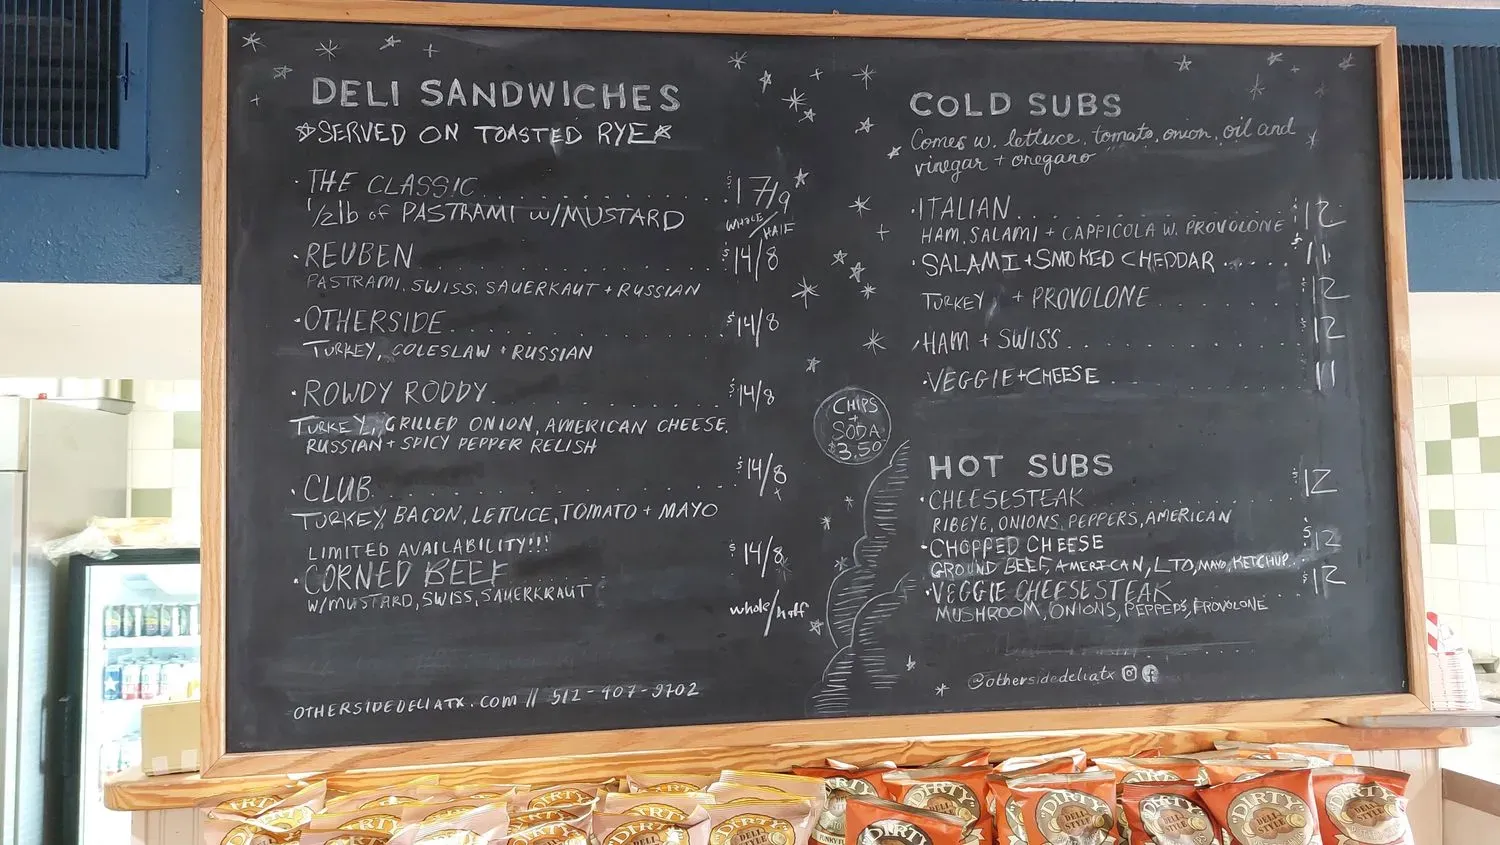 DELI SANDWICHES
SERVED ON TOASTED RYE
· THE CLASSIC . . . . . . . . $17/9
1/2lb of PASTRAMI w/MUSTARD
WHOLE/HALF
· REUBEN . . . . . . . . $14/8
PASTRAMI, SWISS, SAUERKAUT + RUSSIAN
· OTHERSIDE . . . . . . . . $14/8
TURKEY, COLESLAW + RUSSIAN
· ROWDY RODDY . . . . . . . . $14/8
TURKEY, GRILLED ONION, AMERICAN CHEESE,
RUSSIAN + SPICY PEPPER RELISH
· CLUB . . . . . . . . $14/8
TURKEY, BACON, LETTUCE, TOMATO + MAYO
LIMITED AVAILABILITY!!!
· CORNED BEEF . . . . . . . . $14/8
W/MUSTARD, SWISS, SAUERKRAUT
whole/half
OTHERSIDEDELIATX.COM // 512-407-9702
CHIPS
+
SODA
$3.50
COLD SUBS
Comes w. lettuce, tomato, onion, oil and
vinegar + oregano
· ITALIAN . . . . . . . . $12
HAM, SALAMI + CAPPICOLA W. PROVOLONE
· SALAMI + SMOKED CHEDDAR . . . . . $11
TURKEY + PROVOLONE . . . . . . . . $12
· HAM + SWISS . . . . . . . . $12
· VEGGIE + CHEESE . . . . . . . . 11
HOT SUBS
· CHEESESTEAK . . . . . . . . $12
RIBEYE, ONIONS, PEPPERS, AMERICAN
· CHOPPED CHEESE $12
GROUND BEEF, AMERICAN, LTO, MAYO, KETCHUP
· VEGGIE CHEESESTEAK . . . . . . . . $12
MUSHROOM, ONIONS, PEPPERS, PROVOLONE
@othersidedeliatx
"DIRTY"
"DIRTY"
"DIRTY"
"DIRTY"
DELI STYLE
"DIRTY"
"DIRTY"
DELI STYLE
"DIRTY"
DELI STYLE